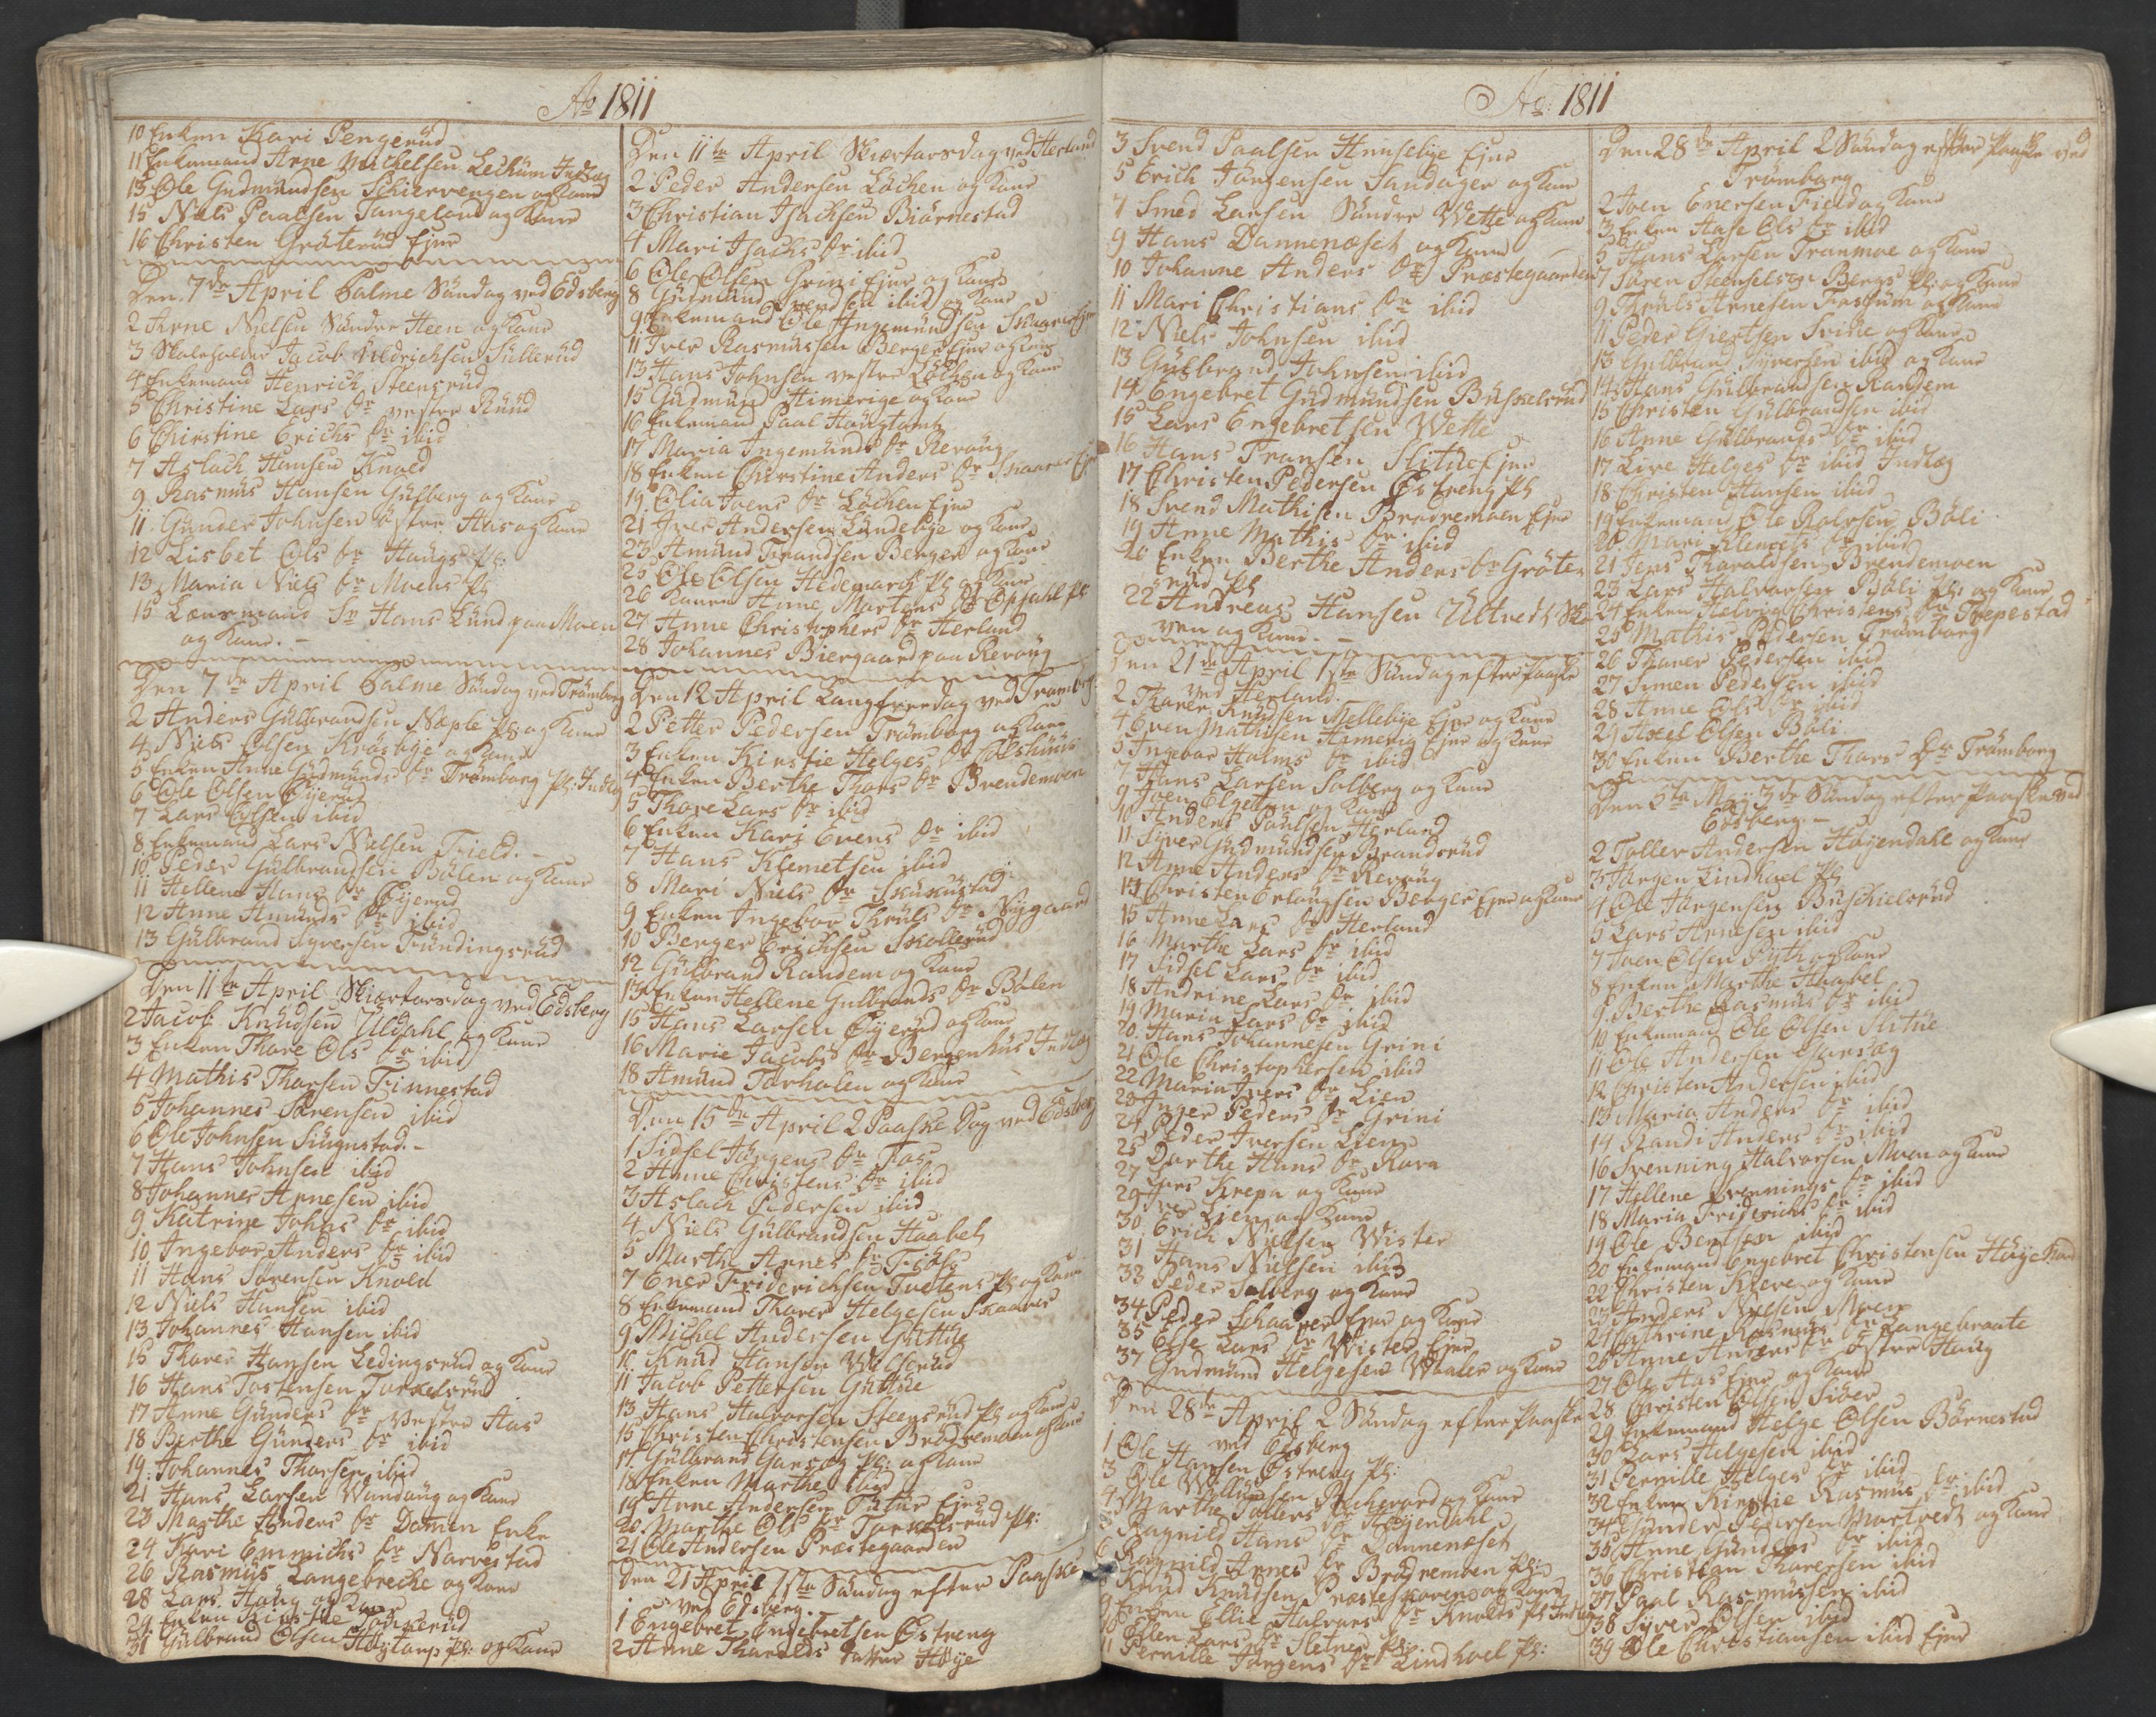 Ao 1811
10 Enken Kari Pengerüd
11 Enkemand Arne Michelsen Lechüm Indlæg
13 Ole Gudmündsen Schiervengen og Kone
15 Niels Paalsen Tangeland og Kone
16 Christen Gröterüd Ejer
Den 7de April Palme Söndag ved Edsberg
2 Arne Nielsen Söndre Steen og Kone
3 Skoleholder Jacob Uldrichsen Süllerüd
4 Enkemand Henrich Steensrüd
5 Christine Lars Dr vestre Rüüd
6 Christine Erichs Dr ibid
7 Aslach Hansen Knold
9 Rasmüs Hansen Gülberg og Kone
11 Günder Johnsen östre Aas og Kone
12 Lisbet Ols Dr Haügs Pl:
13 Maria Niels Dr Moens Pl
15 Lænsmand Sr Hans Lünd paa Moen
og Kone. -
Den 7de April Palme Söndag ved Trömborg
2 Anders Gülbrandsen Næple Pl: og Kone
4 Niels Olsen Kråsbye og Kone
5 Enken Anne Gudmünds Dr Trömborg Pl: Indlæg
6 Ole Olsen Öÿerüd
7 Lars Olsen ibid
8 Enkemand Lars Nielsen Field. -
10 Peder Gülbrandsen Bölen og Kone
11 Hellene Hans Dr Öÿerud
12 Anne Amünds Dr ibid
13 Gülbrand Syversen Fundingsrüd
Den 11te April Skiærtorsdag ved Edsberg
2 Jacob Knüdsen Üldahl og Kone
3 Enken Thore Ols Dr ibid
4 Mathis Thorsen Finnestad
5 Johannes Sörensen ibid
6 Ole Johnsen Siügnstad. -
7 Hans Johnsen ibid
8 Johannes Arnesen ibid
9 Katrine Johns Dr ibid
10 Ingebor Anders Dr ibid
11 Hans Sörensen Knold
12 Niels Hansen ibid
13 Johannes Hansen ibid
15 Thorer Hansen Ledingsrüd og Kone
16 Hans Tostensen Torkelsrüd
17 Anne Günders Dr Vestre Aas
18 Berthe Günders Dr ibid
19 Johannes Thorsen ibid
21 Hans Larsen Wandaüg og Kone
23 Marthe Anders Dr Domen Enke
24 Kari Emmichs Dr Narvestad
26 Rasmüs Langebrecke og Kone
28 Lars Haüg og Kone
29 Enken Kirstie
31 Gülbrand Olsen Höÿtorp Pl: og Kone
Den 11te April Skiærtorsdag ved Herland
2 Peder Andersen Löchen og Kone
3 Christian Isachsen Biörnestad
4 Mari Isachs Dr ibid
6 Ole Olsen Grini Ejer og Kone
8 Gudmünd Svendsen ibid og Kone
9 Enkemand Ole Ingemündsen Skaarer Ejer
11 Iver Rasmüssen Berger Ejer og Kone
13 Hans Johnsen vestre Löchen og Kone
15 Gudmünd Himerige og Kone
16 Enkemand Paal Haügtomt
17 Maria Ingemünds Dr Revoüg
18 Enken Christine Anders Dr Skaarer Ejer
19 Olia Joens Dr Löchen Ejer
21 Iver Andersen Lündebye og Kone
23 Amünd Trandsen Berger og Kone
25 Ole Olsen Hedemarch Pl og Kone
26 Konen Anne Martens Dr Opsahl Pl
27 Anne Christophers Dr Herland
28 Johannes Biergaard paa Revoüg
Den 12 April Langfredag ved Tromborg
2 Petter Pedersen Trömborg og Kone
3 Enken Kirstie Helges Dr Olshüüs
4 Enken Berthe Thors Dr Brendemoen
5 Thore Lars Dr ibid
6 Enken Kari Evens Dr ibid
7 Hans Klemetsen ibid
8 Mari Niels Dr Skükustad
9 Enken Ingebor Thrüls Dr Nÿgaard
10 Berger Erichsen Skollerüd
12 Gülbrand Randem og Kone
13 Enken Hellene Gulbrands Dr Bölen
15 Hans Larsen Öÿerüd og Kone
16 Marie Jacobs Dr Bergenhüs Indlæg
18 Amünd Torholen og Kone
Den 15de April 2 Paaske Dag ved Edsberg
1 Sidsel Jörgens Dr Fos
2 Anne Christens Dr ibid
3 Aslach Pedersen ibid
4 Niels Gülbrandsen Haabel
5 Marthe Arnes Dr Fiöss
7 Ener Friderichsen Tvetens Pl og Kone
8 Enkemand Thorer Helgesen Skaarer
9 Michel Andersen Güttüe
10 Knüd Hansen Wilserüd
11 Jacob Pettersen Güttüe
13 Hans Halvorsen Steensrüd Pl og Kone
15 Christen Christensen Brödremoen og Kone
17 Gülbrand Garsæg Pl: og Kone
18 Enken Marthe ibid
19 Anne Andersen Tütür Ejer
20 Marthe Ols Dr Torkelsrüd Pl:
21 Ole Andersen Præstegaarden
Den 21 April 1ste Söndag efter Paaske
ved Edsberg.
1 Engebret Engebretsen Östreng
2 Anne Tharalds Datter Höÿe
Ao: 1811
3 Svend Paalsen Hünsebÿe Ejer
5 Erich Jörgensen Sandager og Kone
7 Smed Larsen Söndre Wette og Kone
9 Hans Dannenæset og Kone
10 Johanne Anders Dr Præstegaarden
11 Mari Christians Dr ibid
12 Niels Johnsen ibid
13 Gülbrand Johnsen ibid
14 Engebret Gudmündsen Büsselsrüd
15 Lars Engebretsen Wette
16 Hans Fransen Slitüe Ejer
17 Christen Pedersen Östreng Pl
18 Svend Mathisen Brödremoen Ejer
19 Anne Mathis Dr ibid
20 Enken Berthe Anders Dr Gröte-
rüd Pl
22 Andreas Hansen Ültvedt Sko-
ven og Kone. -
Den 21de April 1ste Söndag efter Paaske
ved Herland.
2 Thorer Knüdsen Mellebÿe Ejer og Kone
4 Even Mathisen Himerig Ejer og Kone
5 Ingebor Holms Dr ibid
7 Hans Larsen Solberg og Kone
9 Joen Elgetün og Kone
10 Anders Paülsen Herland
11 Syver Gudmündsen Brandsrüd
12 Anne Anders Dr Revoüg
14 Christen Erlangsen Berger Ejer og Kone
15 Anne Lars Dr Herland
16 Marthe Lars Dr ibid
17 Sidsel Lars Dr ibid
18 Andrine Lars Dr ibid
19 Maria Lars Dr ibid
20 Hans Johannesen Grini
21 Ole Christophersen ibid
22 Maria Ivers Dr Lien
23 Inger Peders Dr Grini
24 Peder Iversen Lien
25 Dorthe Hans Dr Rova
27 Lars Krepa og Kone
29 Iver Lien og Kone
30 Erich Nielsen Wister
31 Hans Nielsen ibid
33 Peder Solberg og Kone
34 Peder Schaarer Ejer og Kone
35 Else Lars Dr Wister Ejer
37 Gudmünd Helgesen Waaler og Kone
Den 28de April 2 Söndag efter Paaske
ved Edsberg
1 Ole Hansen Östreng Pl:
3 Ole Willügsen Bechevord og Kone
4 Marthe Tollers Dr Höÿendahl
5 Ragnild Hans Dr Dannenæset
6 Ragnild Arnes Dr Brödremoen Pl:
8 Knüd Knüdsen Præsteskoven og Kone
9 Enken Ellie Halvors Dr Knolds Pl Indlæg
10 Ellen Lars Dr Sletner Pl:
11 Pernille Jörgens Dr Lindhoel Pl:
Den 28de April 2 Söndag efter Paaske ved
Trömborg
2 Joen Enersen Field og Kone
3 Enken Aase Ols Dr ibid
5 Hans Larsen Tranmoe og Kone
7 Sören Steenselsrön Bergs Pl: og Kone
9 Thrüls Arnesen Frashüm og Kone
11 Peder Giertsen Svike og Kone
13 Gulbrand Syversen ibid og Kone
14 Hans Gülbrandsen Randem
15 Christen Gülbrandsen ibid
16 Anne Gülbrands Dr ibid
17 Live Helges Dr ibid Indlæg
18 Christen Hansen ibid
19 Enkemand Ole Rolvsen Böli
20 Mari Klemets Dr ibid
21 Jens Tharaldsen Brendemoen
23 Lars Halvorsen Böli Pl: og Kone
24 Enken Helvig Christens Dr Trepestad
25 Mathis Pedersen Trömborg
26 Thorer Pedersen ibid
27 Simen Pedersen ibid
28 Anne Ols Dr ibid
29 Axel Olsen Böli
30 Enken Berthe Thors Dr Trömborg
Den 5te Maÿ 3de Söndag efter Paaske ved
Edsberg. -
2 Toller Andersen Höÿendahl og Kone
3 Jörgen Lindhoel Pl
4 Ole Jörgensen Büschielsrüd
5 Lars Arnesen ibid
7 Joen Olsen Pÿth og Kone
8 Enken Marthe Haabel
9 Berthe Rasmüs Dr ibid
10 Enkemand Ole Olsen Slitüe
11 Ole Andersen Garsæg
12 Christen Andersen ibid
13 Maria Anders Dr ibid
14 Randi Anders Dr ibid
16 Svenning Halvorsen Moen og Kone
17 Hellene Svennings Dr ibid
18 Maria Friderichs Dr ibid
19 Ole Bentsen ibid
20 Enkemand Engebret Christensen Höÿe
22 Christen Kleve og Kone
23 Anders Nielsen Moen
24 Cathrine Rasmüs Dr Langebraate
25 Anne Anders Dr östre Haüg
27 Ole Aas Ejer og Kone
28 Christen Olsen Siöer
29 Enkemand Helge Olsen Börnestad
30 Lars Helgesen ibid
31 Pernille Helges Dr ibid
32 Enken Kirstie Rasmüs Dr ibid
34 Günder Pedersen Mortvedt og Kone
35 Anne Günders Dr ibid
36 Christian Thoresen ibid
37 Paal Rasmüssen ibid
38 Syver Olsen ibid
39 Ole Christiansen ibid Ejer